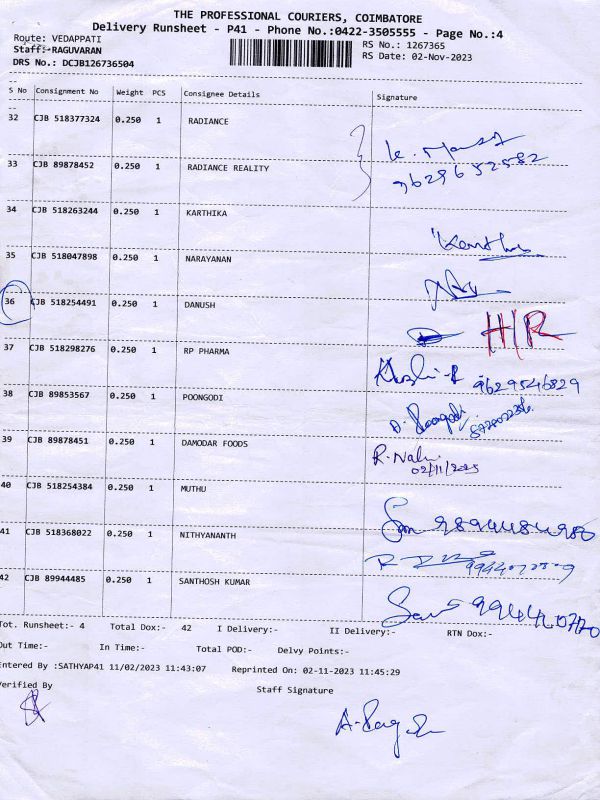 THE PROFESSIONAL COURIERS, COIMBATORE
Delivery Runsheet - P41 - Phone No.:0422-3505555 - Page No.:4
Route: VEDAPPATI
RS No.: 1267365
Staff:-RAGUVARAN
RS Date: 02-Nov-2023
DRS No.: DCJB126736504
S No Consignment No Weight PCS Consignee Details Signature
32 CJB 518377324 0.250 1 RADIANCE
33 CJB 89878452 0.250 1 RADIANCE REALITY
9629652582
34 CJB 518263244 0.250 1 KARTHIKA
35 CJB 518047898 0.250 1 NARAYANAN
36 CJB 518254491 0.250 1 DANUSH H/R
37 CJB 518298276 0.250 1 RP PHARMA
9629546829
38 CJB 89853567 0.250 1 POONGODI
39 CJB 89878451 0.250 1 DAMODAR FOODS
40 CJB 518254384 0.250 1 MUTHU
41 CJB 518368022 0.250 1 NITHYANANTH
42 CJB 89944485 0.250 1 SANTHOSH KUMAR
Tot. Runsheet:- 4 Total Dox:- 42 I Delivery:- II Delivery:- RTN Dox:-
Out Time:- In Time:- Total POD:- Delvy Points:-
Entered By :SATHYAP41 11/02/2023 11:43:07 Reprinted On: 02-11-2023 11:45:29
Verified By
Staff Signature